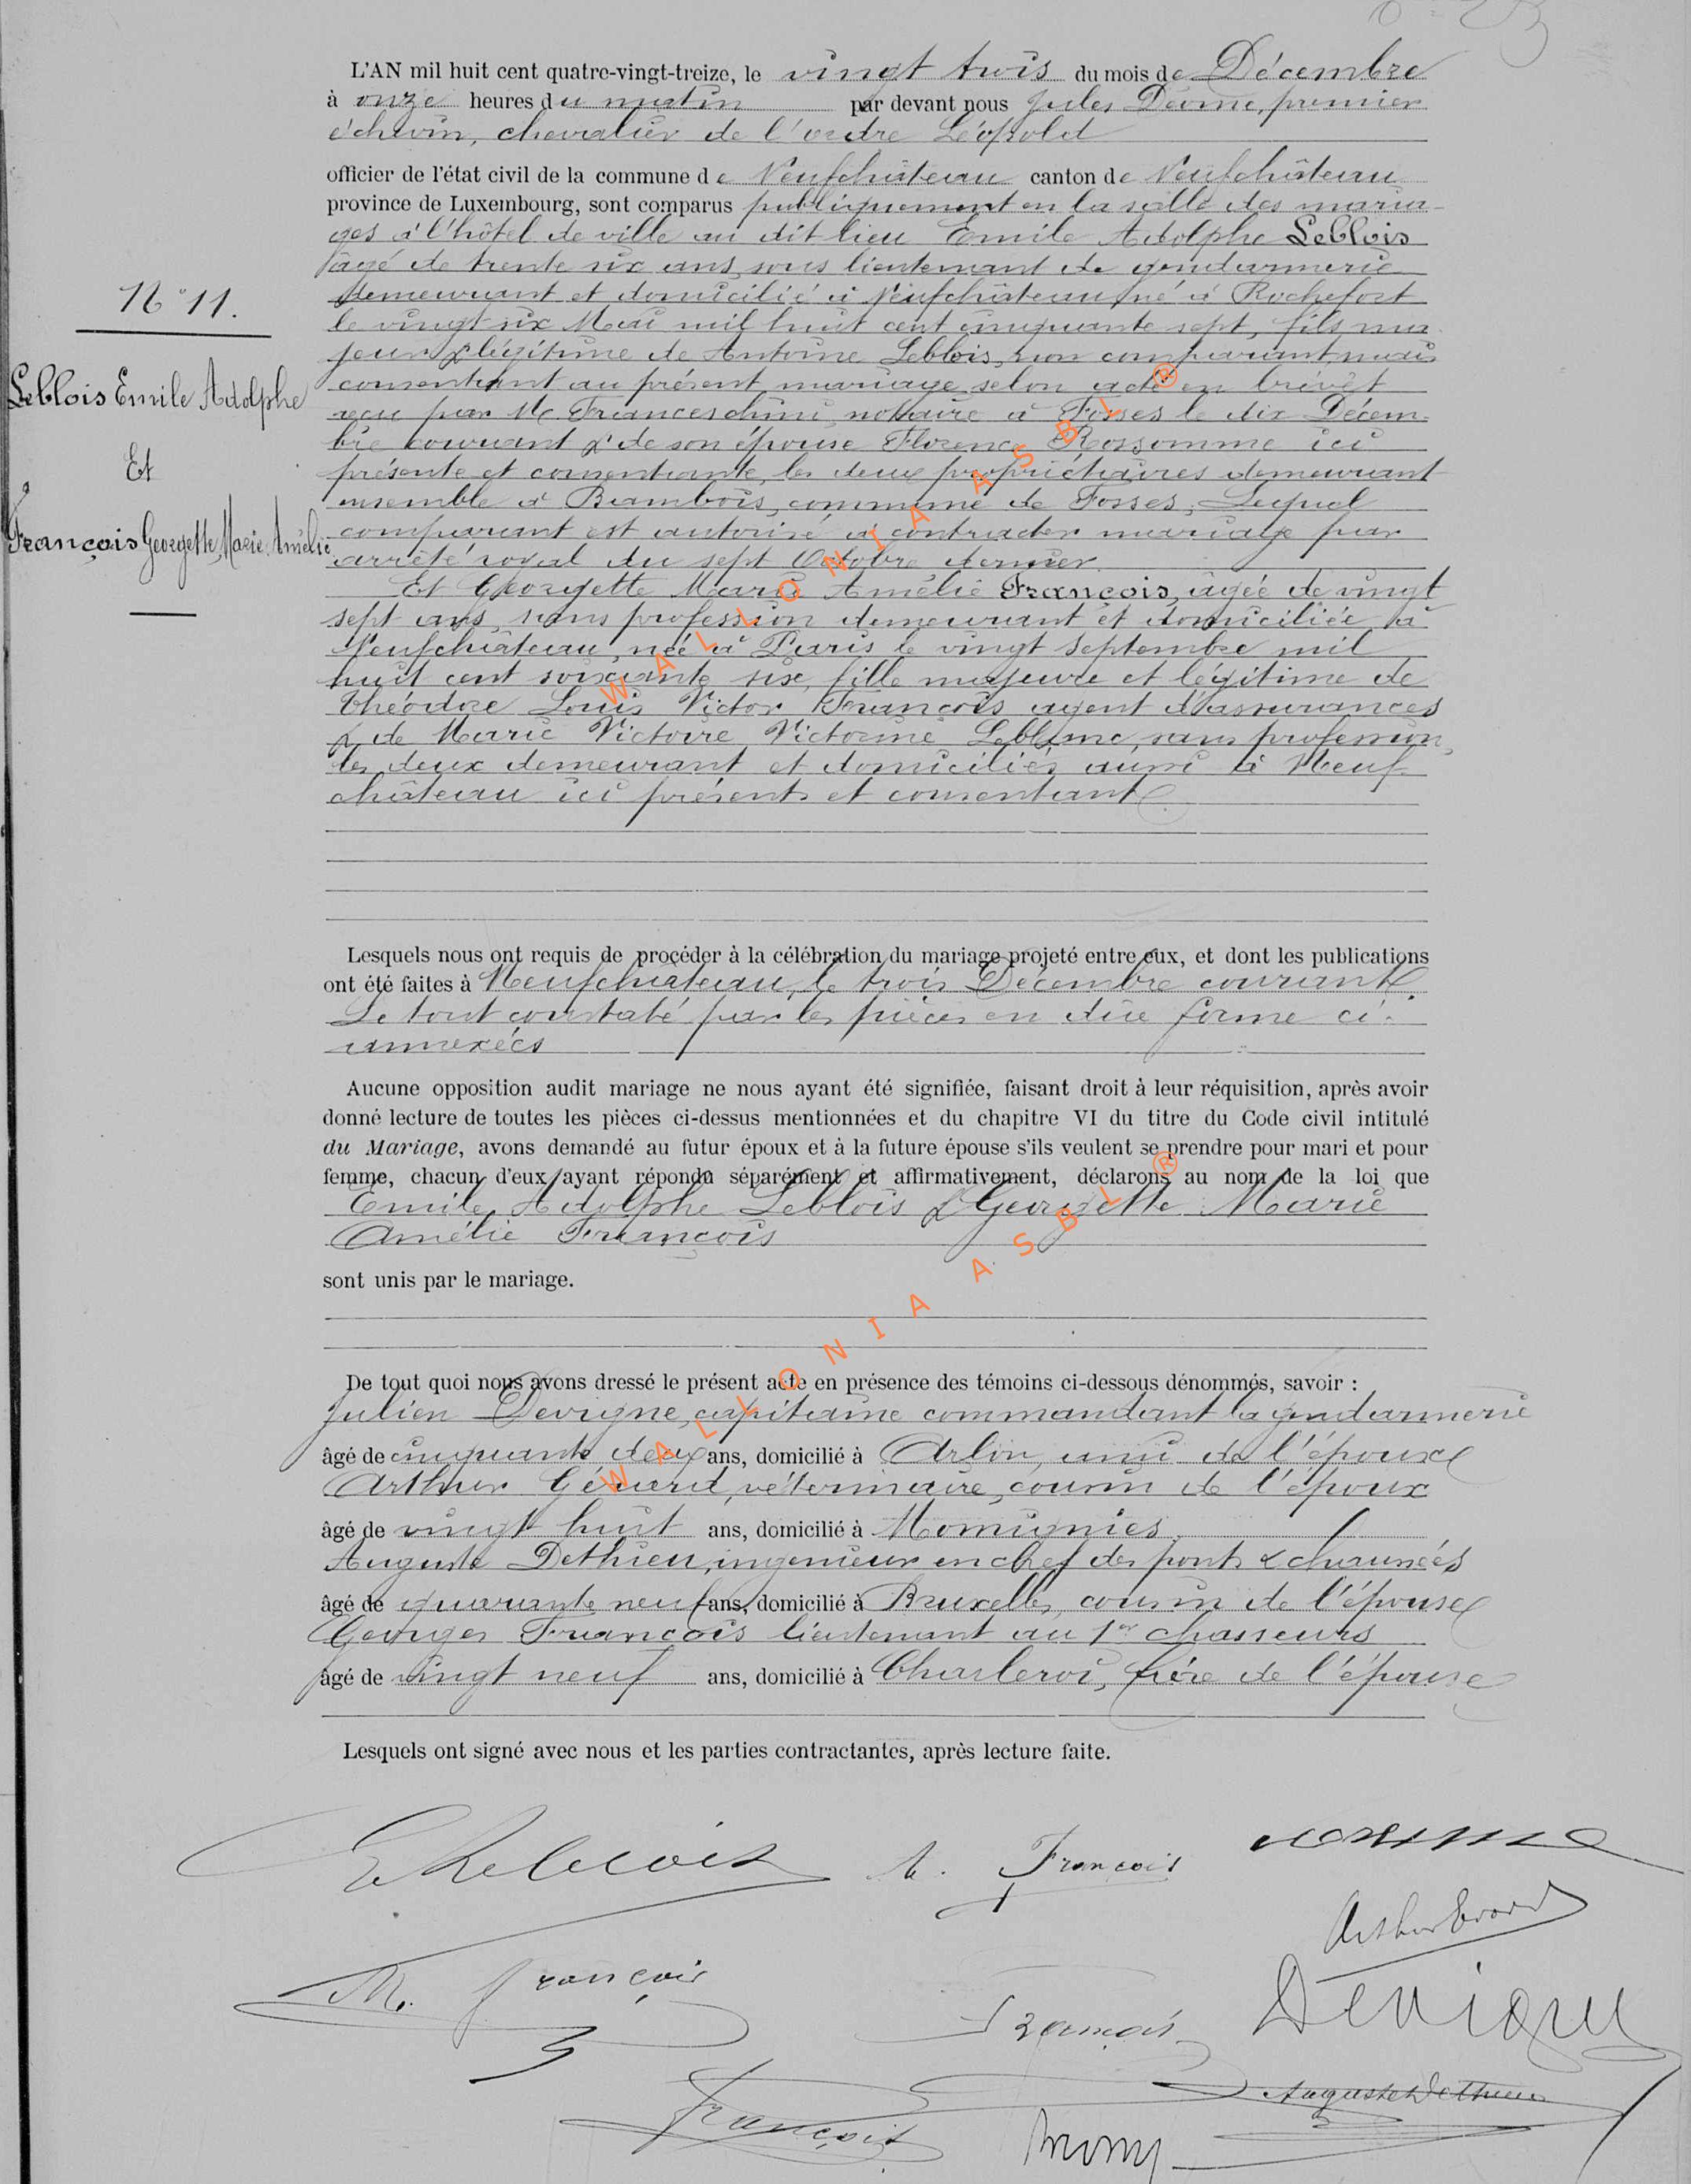 L'AN mil huit cent quatre-vingt-treize, le vingt trois du mois de Décembre
à onze heures du matin par devant nous Jules premier
échevin, chevalier de l'ordre Léopold
officier de l'état civil de la commune de Neufchâteau canton de Neufchâteau
province de Luxembourg, sont comparus publiquement en la salle des maria-
ges à l'hôtel de ville au dit lieu Emile Adolphe Leblois
âgé de trente six ans, sous lieutenant de gendarmerie
demeurant et domicilié à Neufchâteau, né à Rochefort
le vingt six Mai mil huit cent cinquante sept, fils ma
jeur & légitime de Antoine Leblois, non comparant mais
consentant au présent mariage selon acte en brévet
reçu par Me Franceschini notaire à Fosses le dix Décem-
bre courant & de son épouse Florence Rossomme ici
présente et consentante, les deux propriétaires demeurant
ensemble à Bambois, commune de Fosses, Lequel
comparant est autorisé à contracter mariage par
arrêté royal du sept Octobre dernier.
Et Georgette Marie Amélie François, âgée de vingt
sept ans, sans profession demeurant et domiciliée à
Neufchâteau, née à Paris le vingt Septembre mil
huit cent soixante six, fille majeure et légitime de
Théodore Louis Victor François agent d'assurances
& de Marie Victoire Victorine Leblanc, sans profession,
les deux demeurant et domiciliés aussi à Neuf-
château ici présents et consentant
N° 11.
Leblois Emile Adolphe
Et
François Georgette, Marie, Amélie
Lesquels nous ont requis de procéder à la célébration du mariage projeté entre eux, et dont les publications
ont été faites à Neufchâteau, le trois Décembre courant.
Le tout constaté par les pièces en due forme ci-
annexées
Aucune opposition audit mariage ne nous ayant été signifiée, faisant droit à leur réquisition, après avoir
donné lecture de toutes les pièces ci-dessus mentionnées et du chapitre VI du titre du Code civil intitulé
du Mariage, avons demandé au futur époux et à la future épouse s'ils veulent se prendre pour mari et pour
femme, chacun d'eux ayant répondu séparément et affirmativement, déclarons au nom de la loi que
Emile Adolphe Leblois & Georgette Marie
Amélie François
sont unis par le mariage.
De tout quoi nous avons dressé le présent acte en présence des témoins ci-dessous dénommés, savoir :
Julien Devigne, capitaine commandant la gendarmerie
âgé de cinquante deux ans, domicilié à Arlon, ami de l'époux
Arthur vétérinaire, cousin de l'époux
âgé de vingt huit ans, domicilié à Momignies
Auguste Dethieu, ingenieur en chef des ponts & chaussées
âgé de quarante neuf ans, domicilié à Bruxelles, cousin de l'épouse
Georges François lieutenant au 1er chasseurs
âgé de vingt neuf ans, domicilié à Charleroi, frère de l'épouse
Lesquels ont signé avec nous et les parties contractantes, après lecture faite.
E Leblois
François
Arthur Evrard
M. François
François
Devigne
Auguste Dethieu
François
WALLONIA ASBL ®
WALLONIA ASBL ®